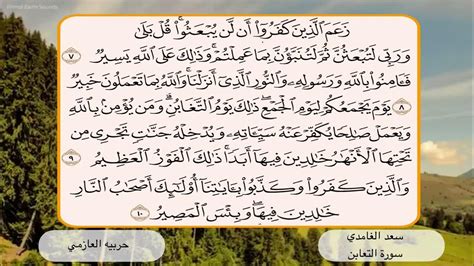 زَعَمَ ٱلَّذِينَ كَفَرُوٓاْ أَن لَّن يُبۡعَثُواْۚ قُلۡ بَلَىٰ
وَرَبِّي لَتُبۡعَثُنَّ ثُمَّ لَتُنَبَّؤُنَّ بِمَا عَمِلۡتُمۡۚ وَذَٰلِكَ عَلَى ٱللَّهِ يَسِيرٞ ٧
فَـَٔامِنُواْ بِٱللَّهِ وَرَسُولِهِۦ وَٱلنُّورِ ٱلَّذِيٓ أَنزَلۡنَاۚ وَٱللَّهُ بِمَا تَعۡمَلُونَ خَبِيرٞ
٨ يَوۡمَ يَجۡمَعُكُمۡ لِيَوۡمِ ٱلۡجَمۡعِۖ ذَٰلِكَ يَوۡمُ ٱلتَّغَابُنِۗ وَمَن يُؤۡمِنۢ بِٱللَّهِ
وَيَعۡمَلۡ صَٰلِحٗا يُكَفِّرۡ عَنۡهُ سَيِّـَٔاتِهِۦ وَيُدۡخِلۡهُ جَنَّٰتٖ تَجۡرِي مِن
تَحۡتِهَا ٱلۡأَنۡهَٰرُ خَٰلِدِينَ فِيهَآ أَبَدٗاۚ ذَٰلِكَ ٱلۡفَوۡزُ ٱلۡعَظِيمُ ٩
وَٱلَّذِينَ كَفَرُواْ وَكَذَّبُواْ بِـَٔايَٰتِنَآ أُوْلَٰٓئِكَ أَصۡحَٰبُ ٱلنَّارِ
خَٰلِدِينَ فِيهَاۖ وَبِئۡسَ ٱلۡمَصِيرُ ١٠
سعد الغامدي
سورة التعابن
حربيه العازمي